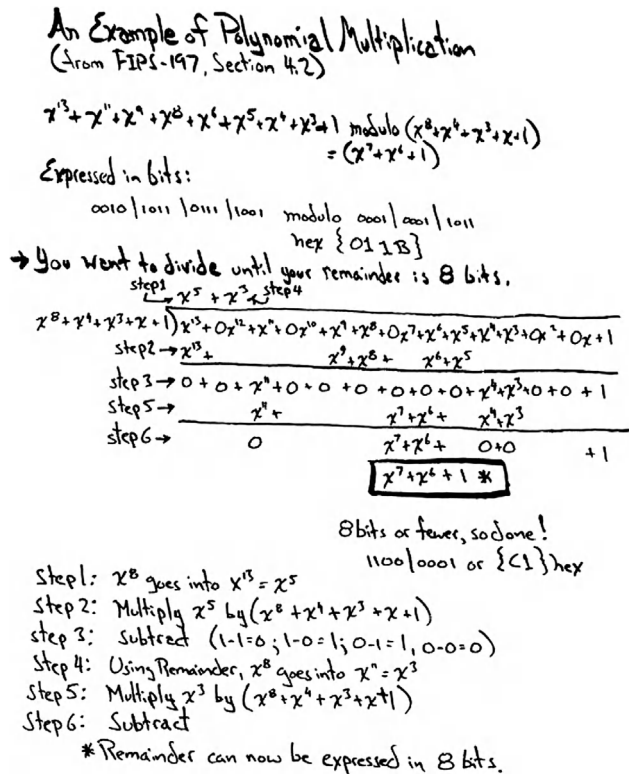 An Example of Polynomial Multiplication
(from FIPS-197, Section 4.2)
x¹³ + x¹¹ + x⁹ + x⁸ + x⁶ + x⁵ + x⁴ + x³ + 1 modulo (x⁸ + x⁴ + x³ + x + 1)
= (x⁷ + x⁶ + 1)
Expressed in bits:
0010 | 1011 | 0111 | 1001 modulo 0001 | 0001 | 1011
hex {011B}
→ You want to divide until your remainder is 8 bits.
step1 step4
x⁵ + x³
x⁸ + x⁴ + x³ + x + 1) x¹³ + 0x¹² + x¹¹ + 0x¹⁰ + x⁹ + x⁸ + 0x⁷ + x⁶ + x⁵ + x⁴ + x³ + 0x² + 0x + 1
step2 → x¹³ + x⁹ + x⁸ + x⁶ + x⁵
step 3 → 0 + 0 + x¹¹ + 0 + 0 + 0 + 0 + 0 + 0 + x⁴ + x³ + 0 + 0 + 1
step5 → x¹¹ + x⁷ + x⁶ + x⁴ + x³
step6 → 0 x⁷ + x⁶ + 0 + 0 + 1
x⁷ + x⁶ + 1 *
8 bits or fewer, so done!
1100 | 0001 or {C1} hex
Step1: x⁸ goes into x¹³ = x⁵
Step 2: Multiply x⁵ by (x⁸ + x⁴ + x³ + x + 1)
step 3: Subtract (1-1=0; 1-0=1; 0-1=1, 0-0=0)
Step 4: Using Remainder, x⁸ goes into x¹¹ = x³
Step 5: Multiply x³ by (x⁸ + x⁴ + x³ + x + 1)
Step 6: Subtract
* Remainder can now be expressed in 8 bits.